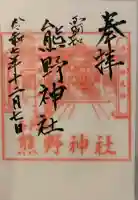 奉拝
熊野神社
令和七年十二月七日
熊野神社